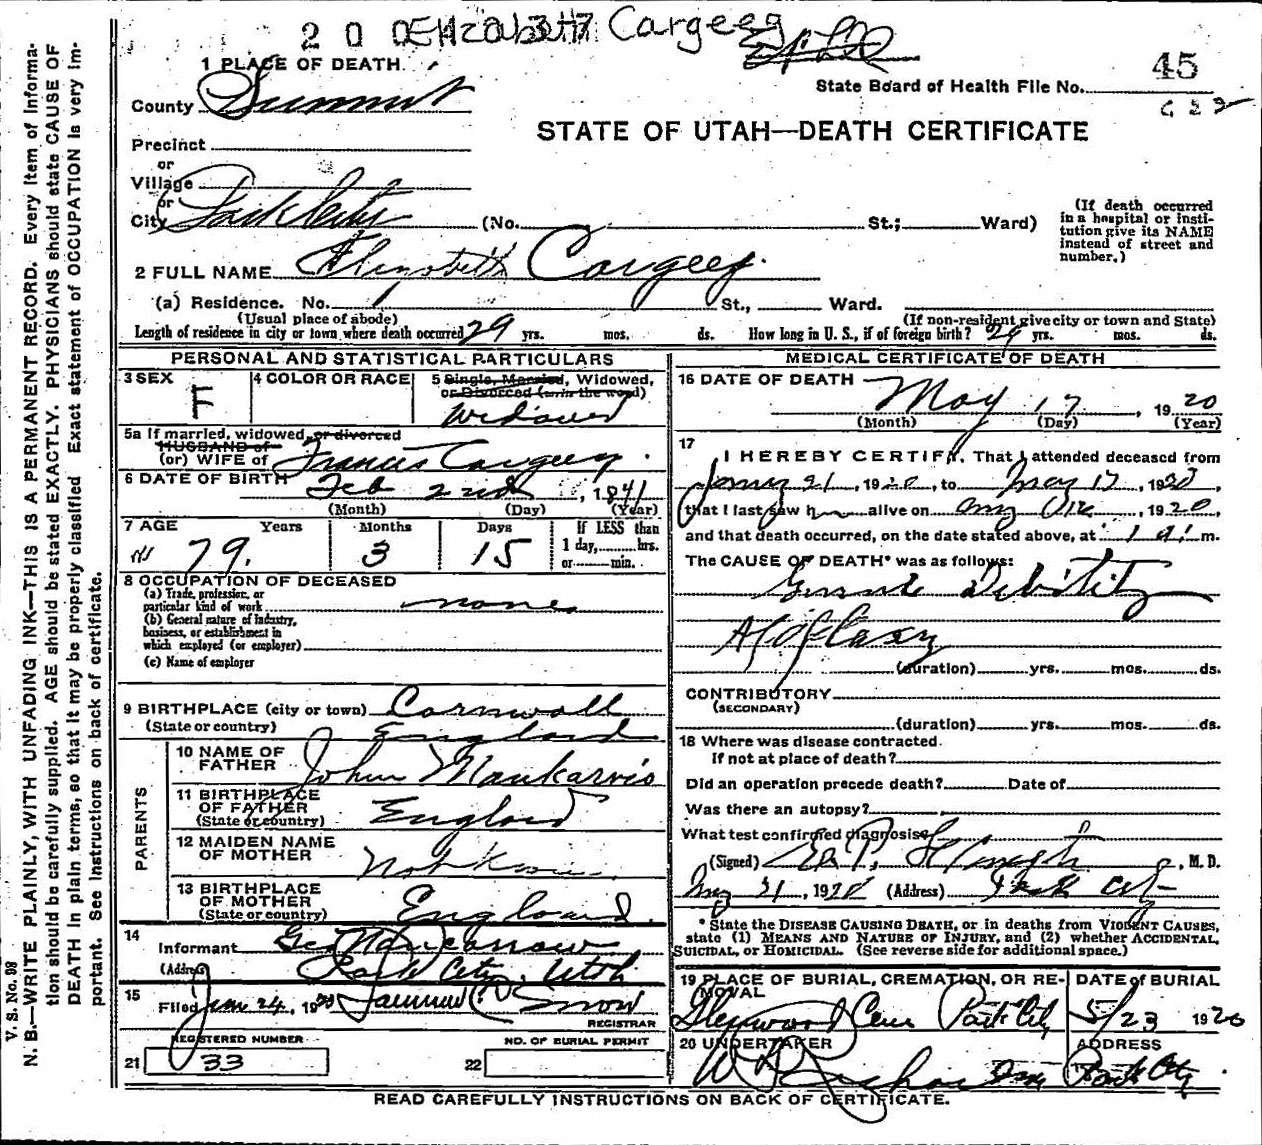 Elizabeth Cargeeg
1 PLACE OF DEATH
45
State Board of Health File No.
County Summit
STATE OF UTAH—DEATH CERTIFICATE
Precinct
or
Village
or
City Park City (No. St.; Ward)
(If death occurred in a hospital or institution give its NAME instead of street and number.)
2 FULL NAME Elizabeth Cargeeg.
(a) Residence. No. St., Ward.
(Usual place of abode) (If non-resident give city or town and State)
Length of residence in city or town where death occurred 29 yrs. mos. ds. How long in U. S., if of foreign birth? 29 yrs. mos. ds.
PERSONAL AND STATISTICAL PARTICULARS
3 SEX F
4 COLOR OR RACE
5 Single, Married, Widowed, or Divorced (write the word)
Widowed
5a If married, widowed, or divorced
HUSBAND of
(or) WIFE of Francis Cargeeg.
6 DATE OF BIRTH Feb 2nd, 1841
(Month) (Day) (Year)
7 AGE Years Months Days If LESS than
79. 3 15 1 day, hrs.
or min.
8 OCCUPATION OF DECEASED
(a) Trade, profession, or
particular kind of work none
(b) General nature of industry,
business, or establishment in
which employed (or employer)
(c) Name of employer
9 BIRTHPLACE (city or town) Cornwall
(State or country) England
PARENTS
10 NAME OF FATHER John
11 BIRTHPLACE OF FATHER (State or country) England
12 MAIDEN NAME OF MOTHER Not Know
13 BIRTHPLACE OF MOTHER (State or country) England.
14
Informant Geo
(Address) Park City, Utah
15
Filed 24, 19 Snow
REGISTRAR
REGISTERED NUMBER
21 33
NO. OF BURIAL PERMIT
22
MEDICAL CERTIFICATE OF DEATH
16 DATE OF DEATH May 17, 1920
(Month) (Day) (Year)
17
I HEREBY CERTIFY, That I attended deceased from
21, 1920, to May 17, 1920,
that I last saw h alive on, 1920,
and that death occurred, on the date stated above, at 1 m.
The CAUSE OF DEATH* was as follows:
Debility
Apoplexy
(duration) yrs. mos. ds.
CONTRIBUTORY
(SECONDARY)
(duration) yrs. mos. ds.
18 Where was disease contracted
If not at place of death?
Did an operation precede death? Date of
Was there an autopsy?
What test confirmed diagnosis
(Signed), M. D.
1920 (Address) Park City
* State the DISEASE CAUSING DEATH, or in deaths from VIOLENT CAUSES,
state (1) MEANS AND NATURE OF INJURY, and (2) whether ACCIDENTAL,
SUICIDAL, or HOMICIDAL. (See reverse side for additional space.)
19 PLACE OF BURIAL, CREMATION, OR REMOVAL
Glenwood Cem Park City
DATE of BURIAL
5/23 1920
20 UNDERTAKER
ADDRESS
Park City.
READ CAREFULLY INSTRUCTIONS ON BACK OF CERTIFICATE.
V. S. No. 98
N. B.—WRITE PLAINLY, WITH UNFADING INK—THIS IS A PERMANENT RECORD. Every item of informa-
tion should be carefully supplied. AGE should be stated EXACTLY. PHYSICIANS should state CAUSE OF
DEATH in plain terms, so that it may be properly classified. Exact statement of OCCUPATION is very im-
portant. See instructions on back of certificate.